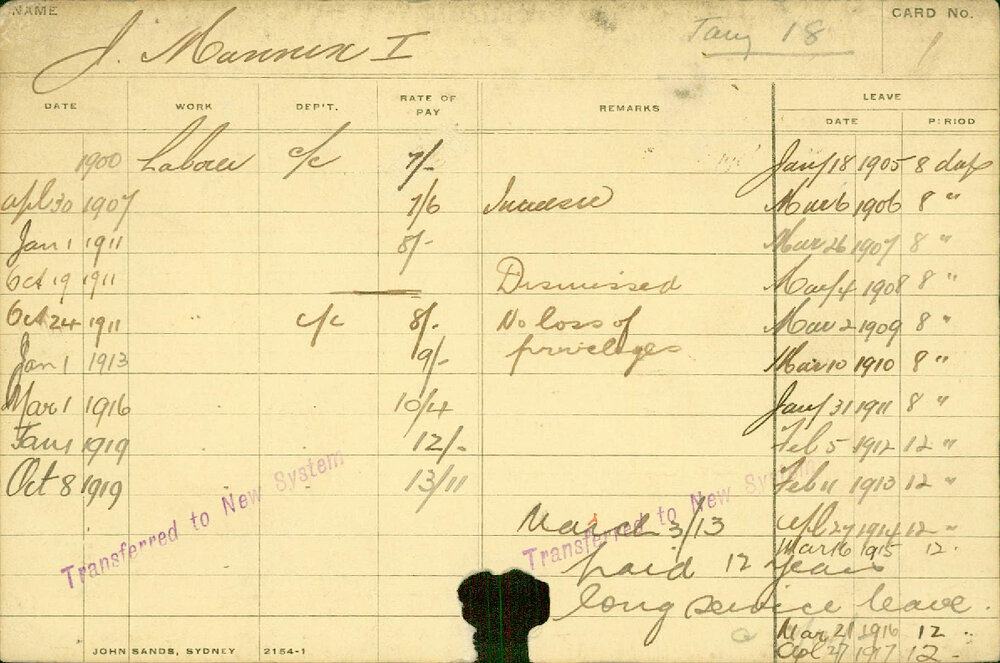 NAME
CARD No.
J. Mannix I
Jany 18
1
DATE WORK DEP'T. RATE OF PAY REMARKS LEAVE
DATE PERIOD
1900 Laborer c/c 7/- Jany 18 1905 8 days
Apl 30 1907 7/6 Increase Mar 6 1906 8 "
Jan 1 1911 8/- Mar 26 1907 8 "
Oct 19 1911 Dismissed May 4 1908 8 "
Oct 24 1911 c/c 8/- No loss of Mar 2 1909 8 "
Jan 1 1913 9/- privileges Mar 10 1910 8 "
Mar 1 1916 10/4 Jany 31 1911 8 "
Jan 1 1919 12/- Feb 5 1912 12 "
Oct 8 1919 13/11 Feb 11 1913 12 "
Transferred to New System
Transferred to New System
March 3/13 Apl 27 1914 12 "
Mar 16 1915 12 "
paid 12 years
long service leave.
Mar 21 1916 12 "
Apl 27 1917 12 -
JOHN SANDS, SYDNEY 2154-1